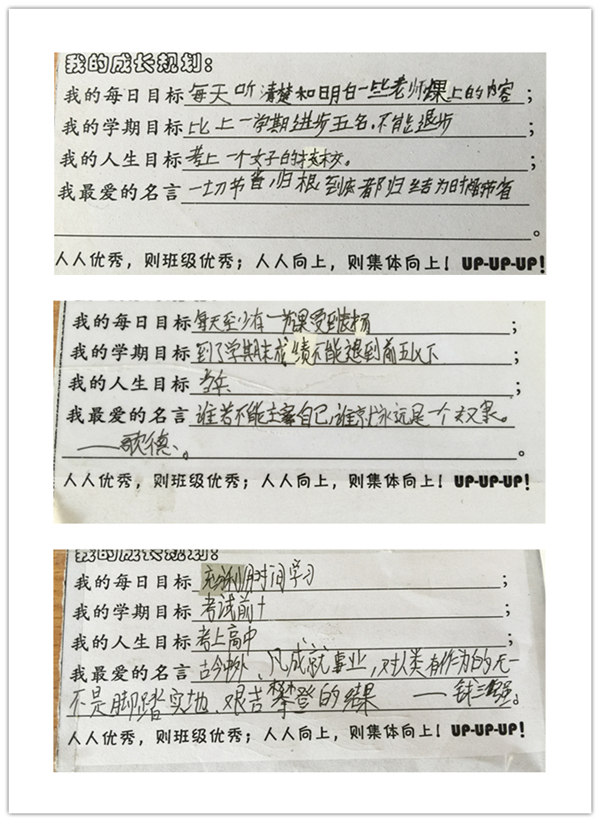 我的成长规划：
我的每日目标每天听清楚和明白一些老师课上的内容；
我的学期目标比上一学期进步五名.不能退步；
我的人生目标考上一个女子的技校。；
我最爱的名言一切节省,归根到底都归结为时间节省
。
人人优秀，则班级优秀；人人向上，则集体向上！UP-UP-UP！
我的每日目标每天至少有一节课受到表扬；
我的学期目标到了学期末成绩不能退到前五以下；
我的人生目标当兵；
我最爱的名言谁若不能主宰自己,谁就永远是一个奴隶。
——歌德。。
人人优秀，则班级优秀；人人向上，则集体向上！UP-UP-UP！
我的成长规划：
我的每日目标充分利用时间学习；
我的学期目标考试前十；
我的人生目标考上高中；
我最爱的名言古今中外、凡成就事业,对人类有作为的无一
不是脚踏实地、艰苦攀登的结果——钱三强。
人人优秀，则班级优秀；人人向上，则集体向上！UP-UP-UP！